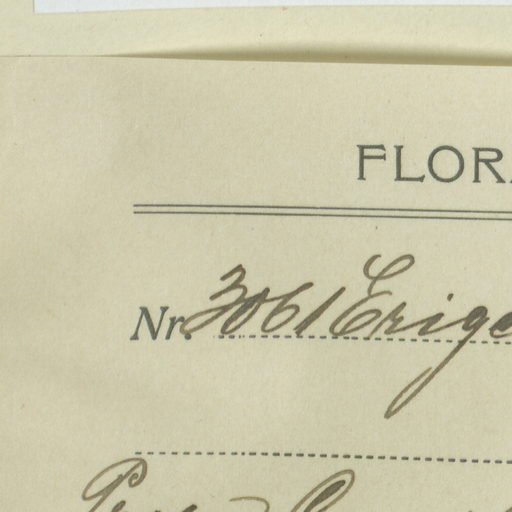 FLORA
Nr. 3061 Erige